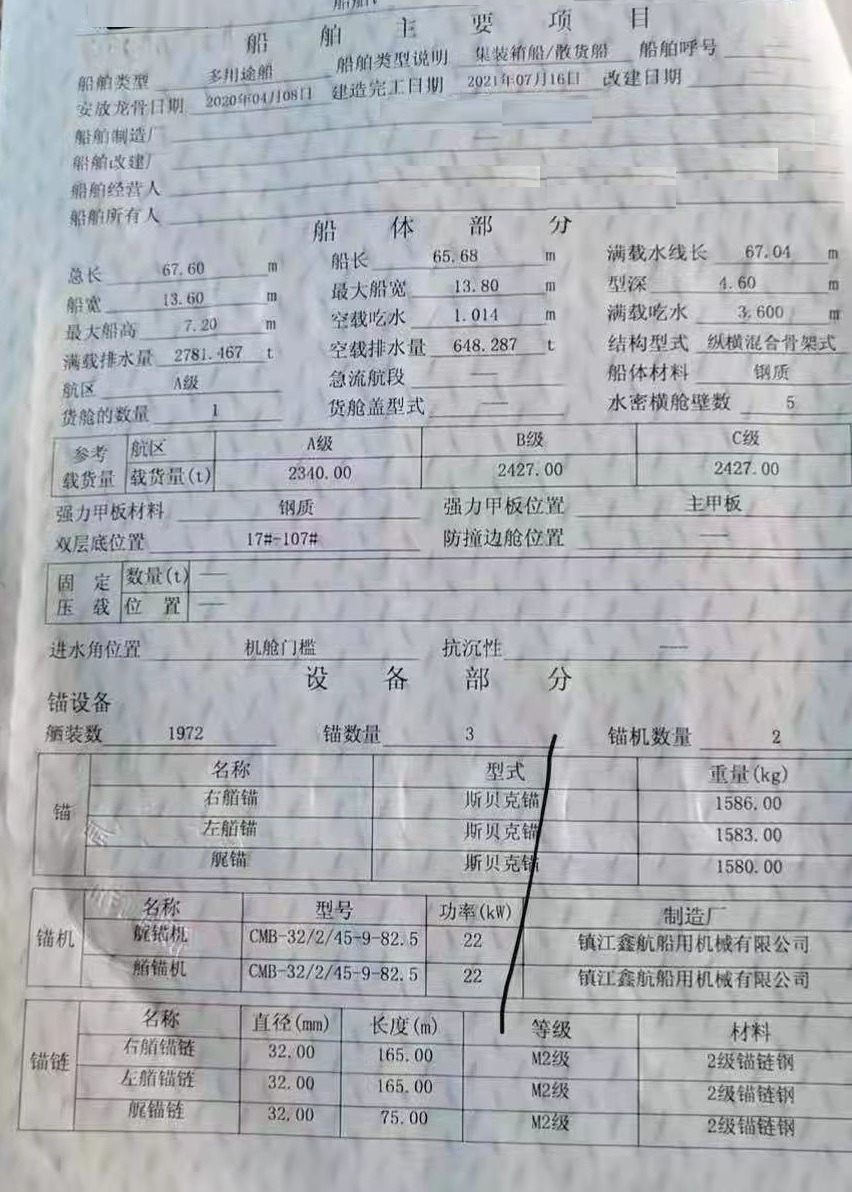 船舶主要项目
船舶类型 多用途船 船舶类型说明 集装箱船/散货船 船舶呼号
安放龙骨日期 2020年04月08日 建造完工日期 2021年07月16日 改建日期
船舶制造厂 ——
船舶改建厂
船舶经营人
船舶所有人
船体部分
总长 67.60 m 船长 65.68 m 满载水线长 67.04 m
船宽 13.60 m 最大船宽 13.80 m 型深 4.60 m
最大船高 7.20 m 空载吃水 1.014 m 满载吃水 3.600 m
满载排水量 2781.467 t 空载排水量 648.287 t 结构型式 纵横混合骨架式
航区 A级 急流航段 —— 船体材料 钢质
货舱的数量 1 货舱盖型式 —— 水密横舱壁数 5
参考载货量 航区 A级 B级 C级
载货量(t) 2340.00 2427.00 2427.00
强力甲板材料 钢质 强力甲板位置 主甲板
双层底位置 17#-107# 防撞边舱位置 ——
固定压载 数量(t) ——
位置 ——
进水角位置 机舱门槛 抗沉性 ——
设备部分
锚设备
舾装数 1972 锚数量 3 锚机数量 2
锚 名称 型式 重量(kg)
右艏锚 斯贝克锚 1586.00
左艏锚 斯贝克锚 1583.00
艉锚 斯贝克锚 1580.00
锚机 名称 型号 功率(kW) 制造厂
艉锚机 CMB-32/2/45-9-82.5 22 镇江鑫航船用机械有限公司
艏锚机 CMB-32/2/45-9-82.5 22 镇江鑫航船用机械有限公司
锚链 名称 直径(mm) 长度(m) 等级 材料
右艏锚链 32.00 165.00 M2级 2级锚链钢
左艏锚链 32.00 165.00 M2级 2级锚链钢
艉锚链 32.00 75.00 M2级 2级锚链钢